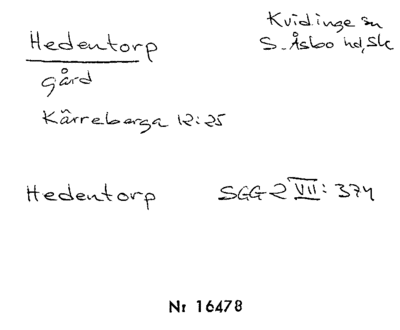 Hedentorp
Kvidinge sn
S. Åsbo hd, Sk
gård
Kärreberga 12:25
Hedentorp SGG 2 VII: 374
Nr 16478